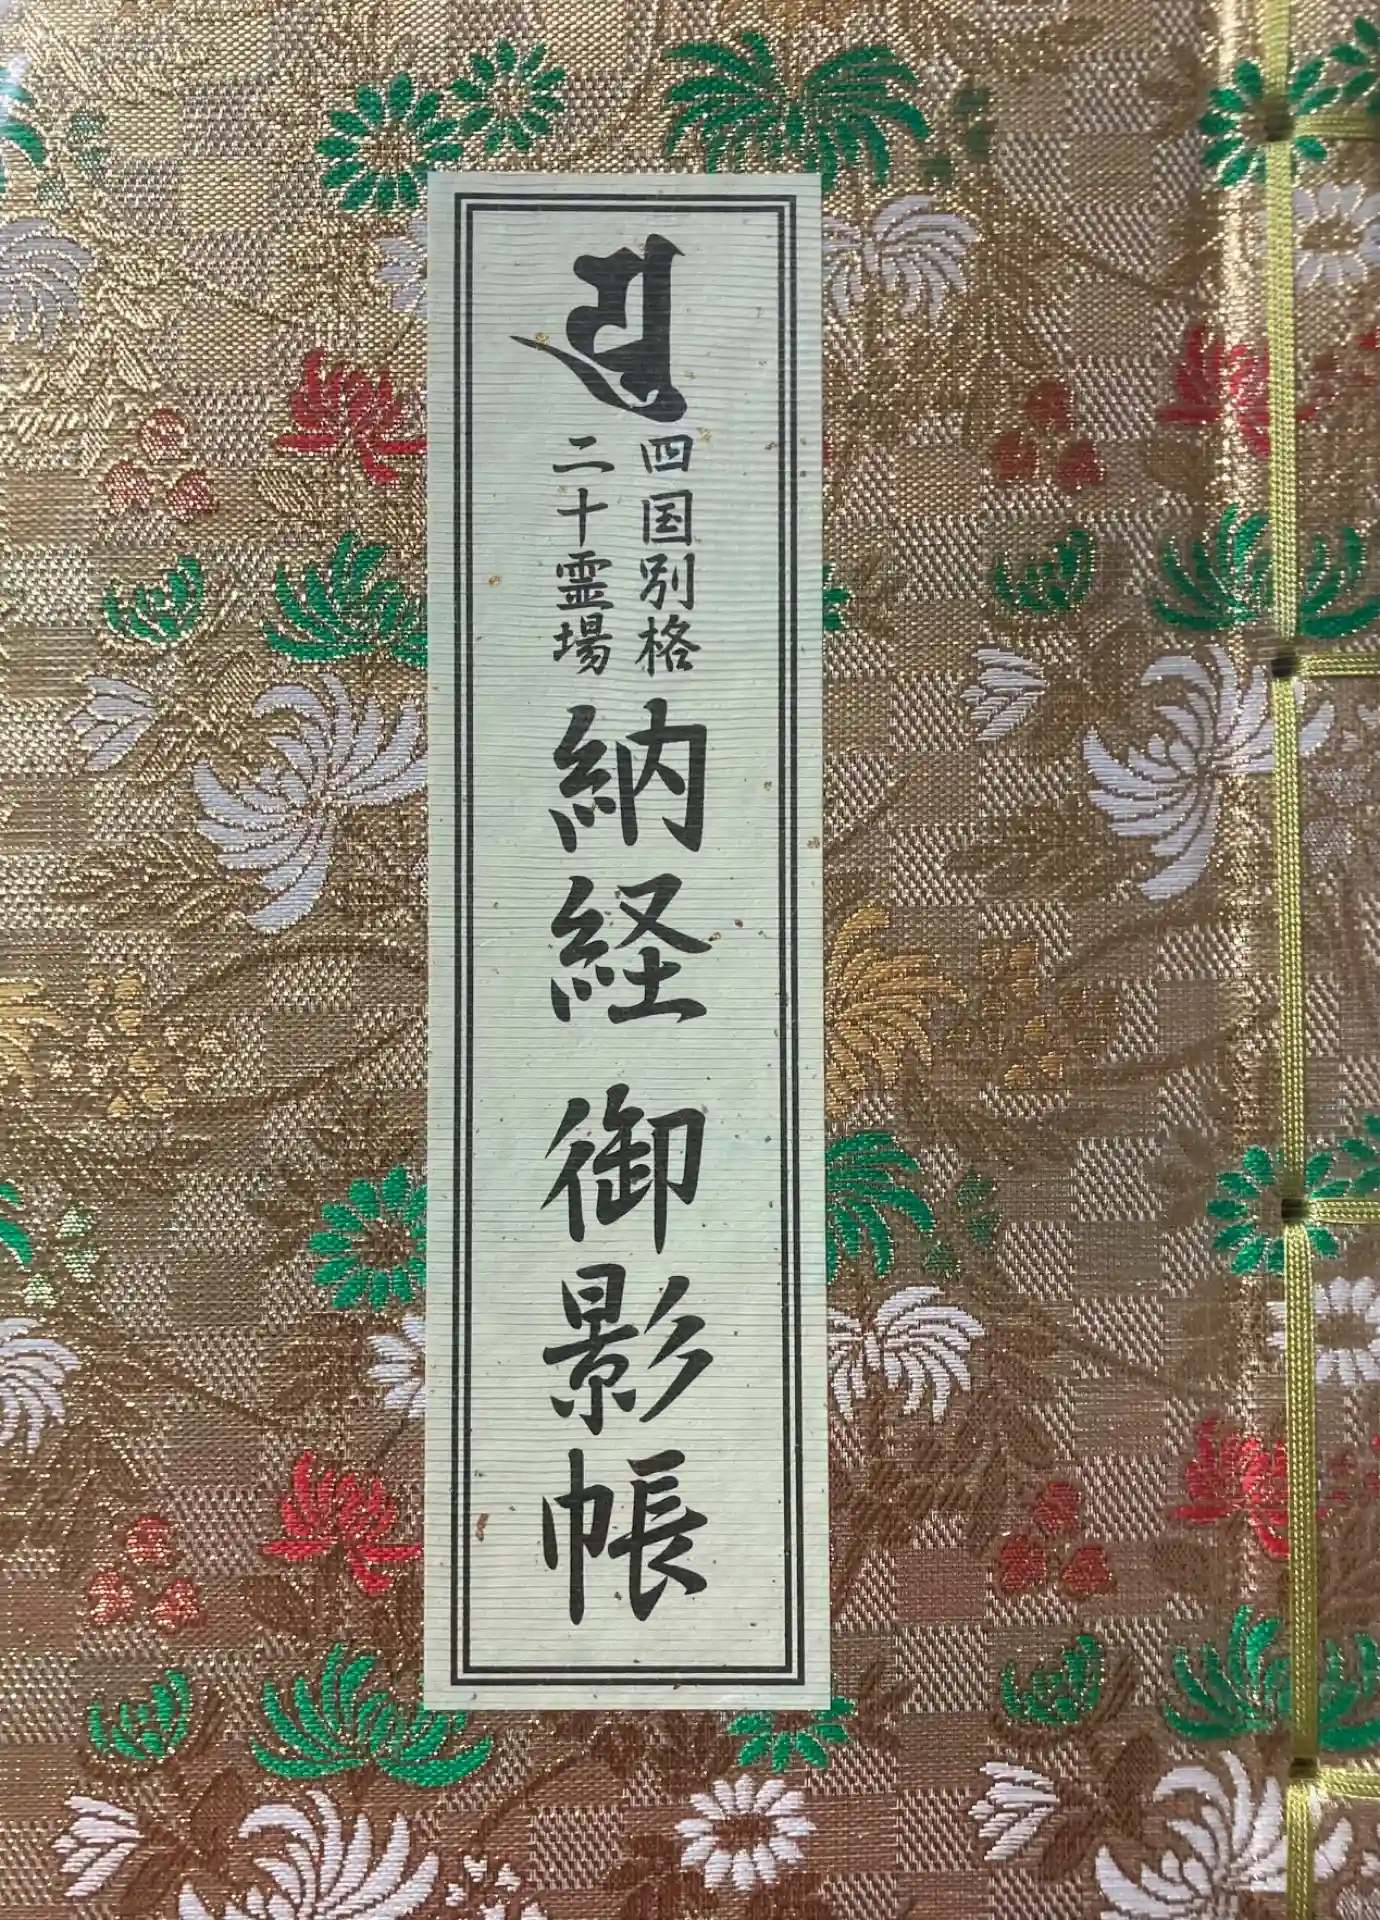 𑖧𑖲
四国別格
二十霊場
納経 御影帳